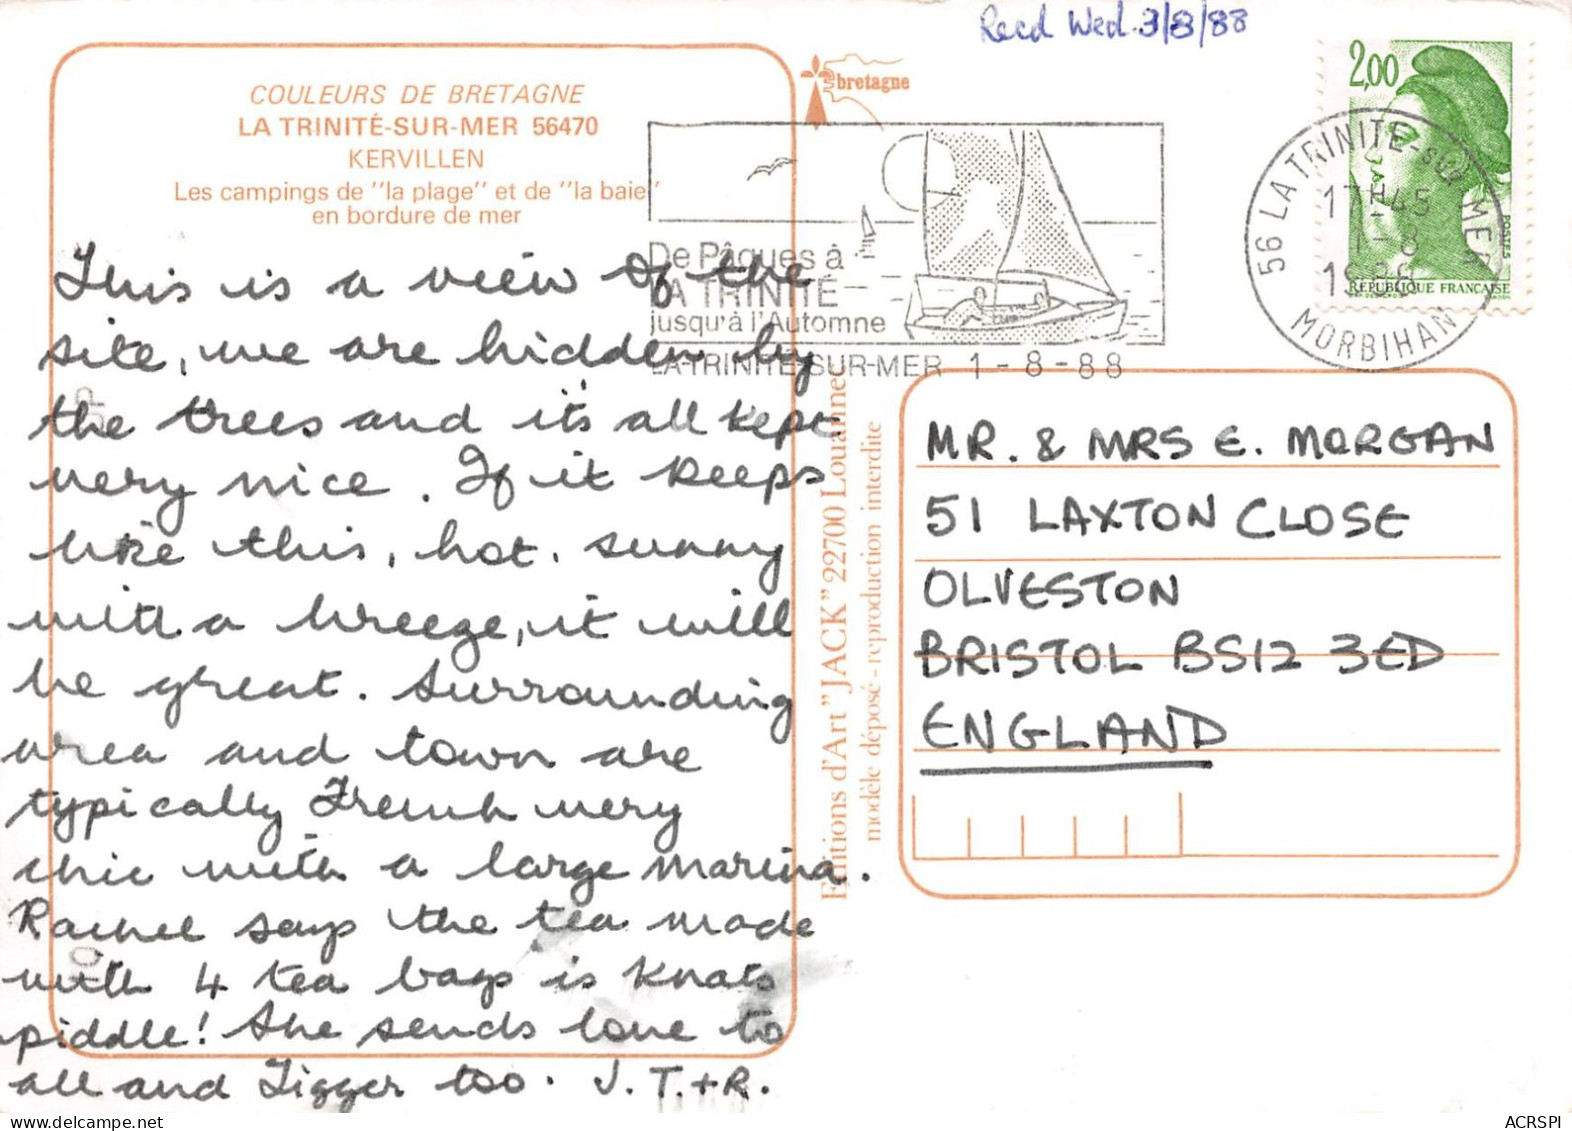 Recd Wed. 3/8/88
COULEURS DE BRETAGNE
LA TRINITÉ-SUR-MER 56470
KERVILLEN
Les campings de "la plage" et de "la baie"
en bordure de mer
bretagne
2,00
POSTES
RÉPUBLIQUE FRANÇAISE
56 LA TRINITE-SUR-MER
17H45
1-8
1988
MORBIHAN
De Pâques à
LA TRINITÉ
jusqu'à l'Automne
LA-TRINITE-SUR-MER 1-8-88
This is a view of the
site, we are hidden by
the trees and its all kept
very nice. If it keeps
like this, hot, sunny
with a breeze, it will
be great. Surrounding
area and town are
typically French very
chic with a large marina.
Rachel says the tea made
with 4 tea bags is knats
piddle! She sends love to
all and Tigger too. J. T. + R.
Editions d'Art "JACK" 22700 Louannec
modèle déposé - reproduction interdite
MR. & MRS E. MORGAN
51 LAXTON CLOSE
OLVESTON
BRISTOL BS12 3ED
ENGLAND
ACRSPI